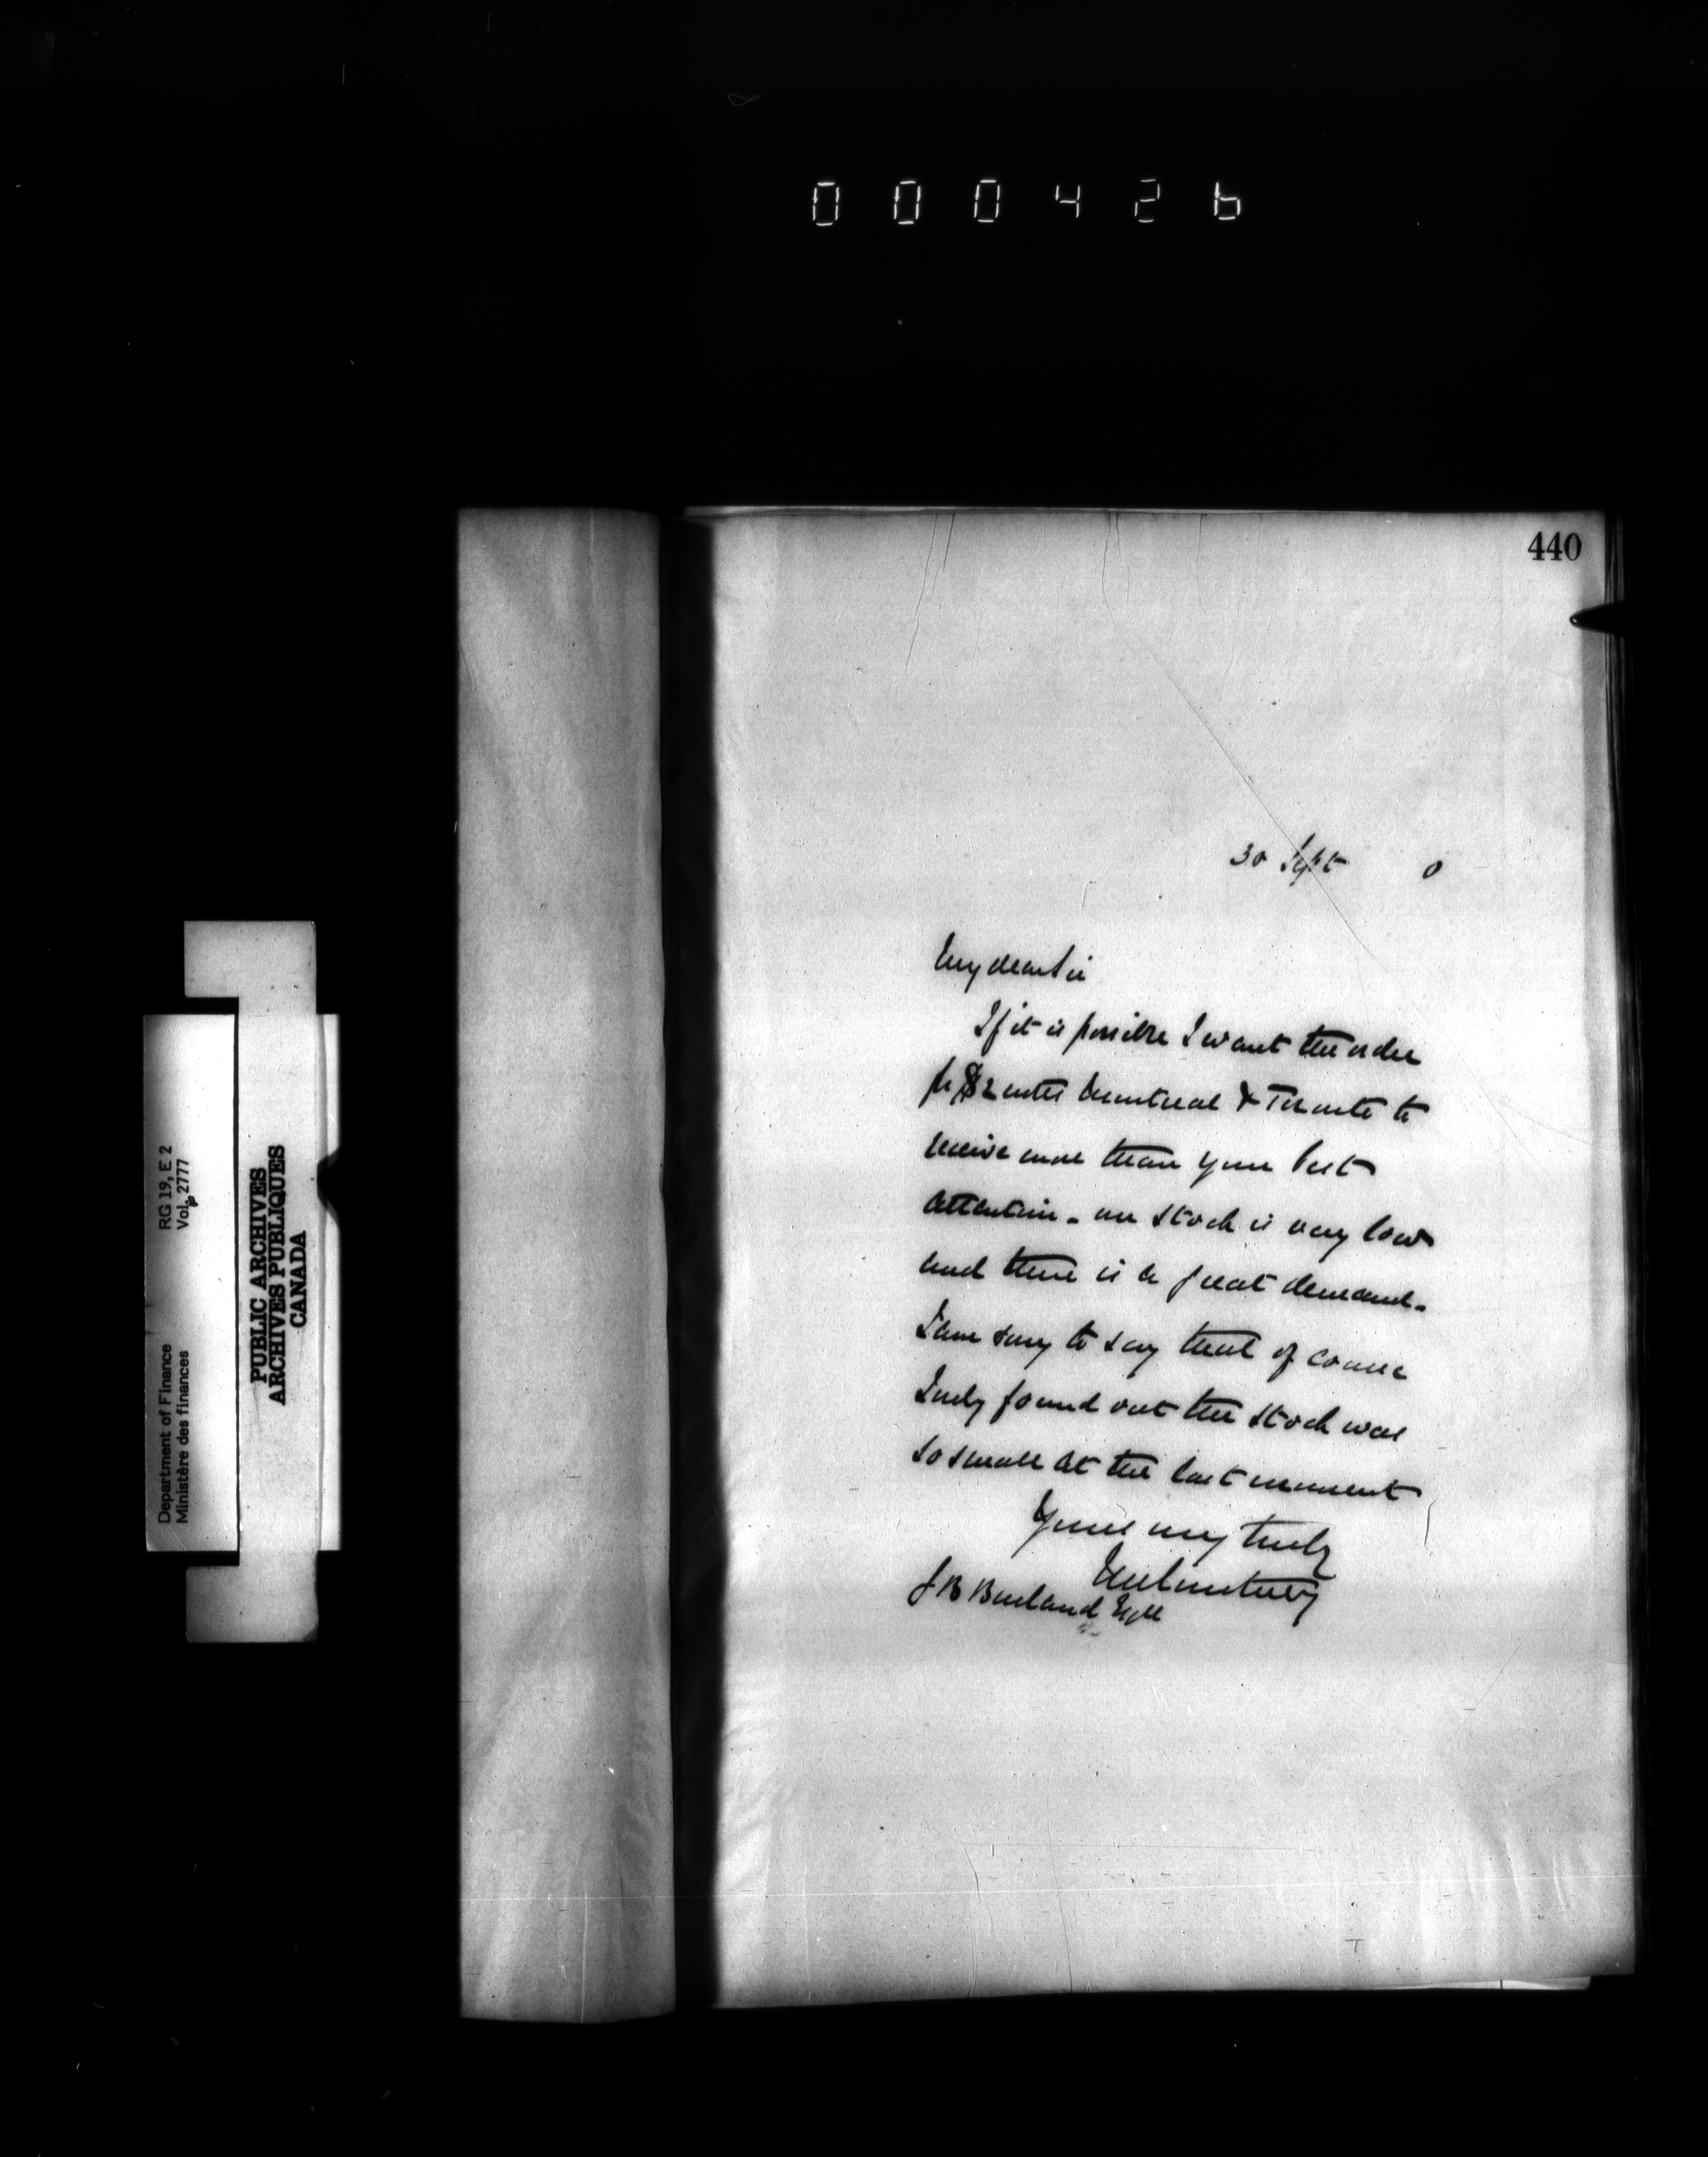 000426
440
30 Sept 0
My dear Sir
If it is possible I want the order
for $2 notes Montreal & Toronto to
receive more than your best
attention - our stock is very low
and there is a great demand.
I am sorry to say that of course
I only found out the stock was
so small at the last moment
Yours very truly
JMCourtney
J B Burland Esqre
Department of Finance RG 19, E 2
Ministère des finances Vol. 2777
PUBLIC ARCHIVES
ARCHIVES PUBLIQUES
CANADA